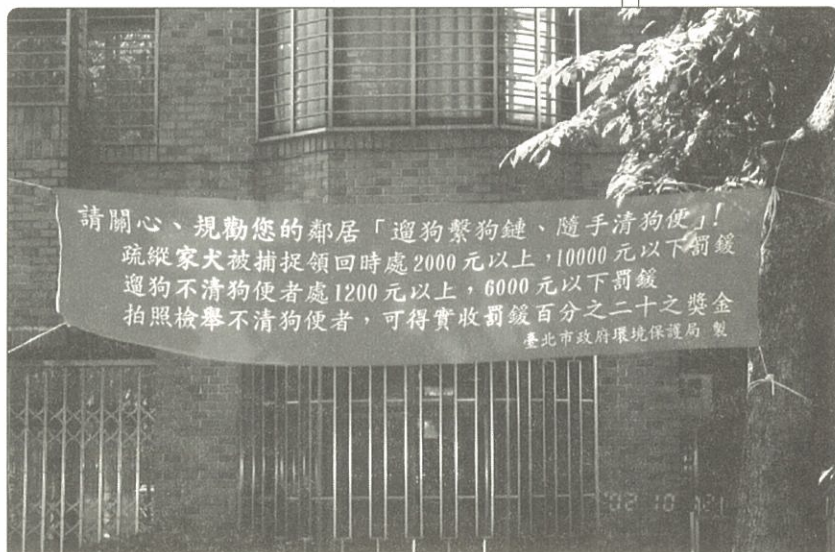 請關心、規勸您的鄰居「遛狗繫狗鏈、隨手清狗便」!
疏縱家犬被捕捉領回時處2000元以上,10000元以下罰鍰
遛狗不清狗便者處1200元以上,6000元以下罰鍰
拍照檢舉不清狗便者,可得實收罰鍰百分之二十之獎金
臺北市政府環境保護局 製